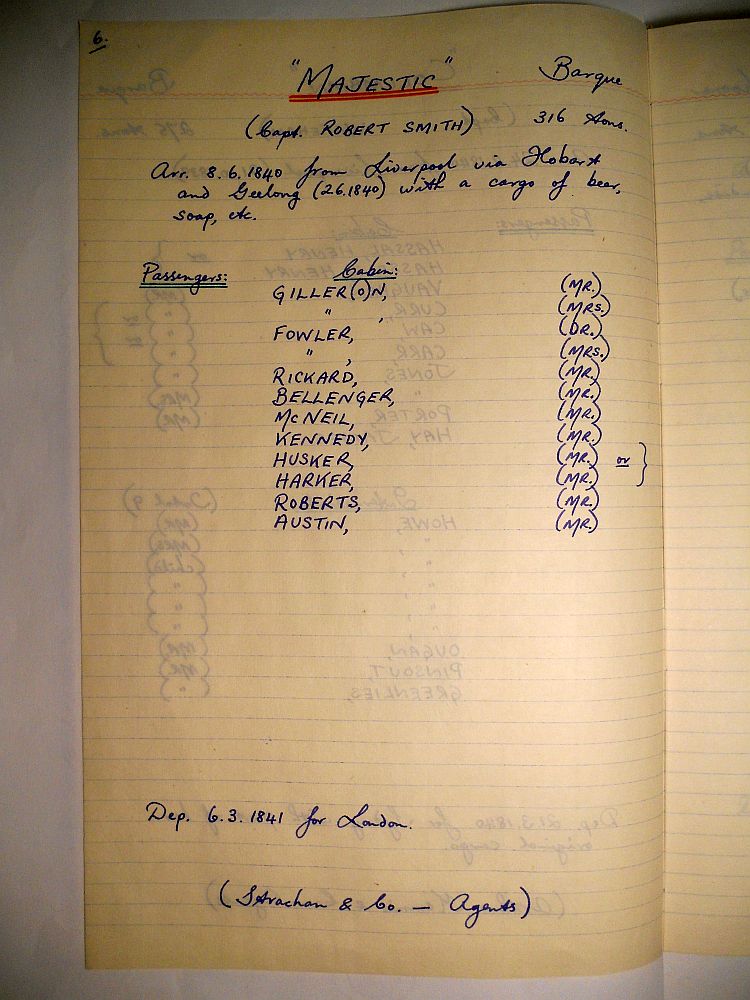 6.
"MAJESTIC" Barque
(Capt. ROBERT SMITH) 316 tons.
Arr. 8.6.1840 from Liverpool via Hobart
and Geelong (2.6.1840) with a cargo of beer,
soap, etc.
Passengers: Cabin:
GILLER(O)N, (MR.)
" , (MRS.)
FOWLER, (DR.)
" , (MRS.)
RICKARD, (MR.)
BELLENGER, (MR.)
McNEIL, (MR.)
KENNEDY, (MR.)
HUSKER, (MR.) or }
HARKER, (MR.)
ROBERTS, (MR.)
AUSTIN, (MR.)
Dep. 6.3.1841 for London.
(Strachan & Co. — Agents)